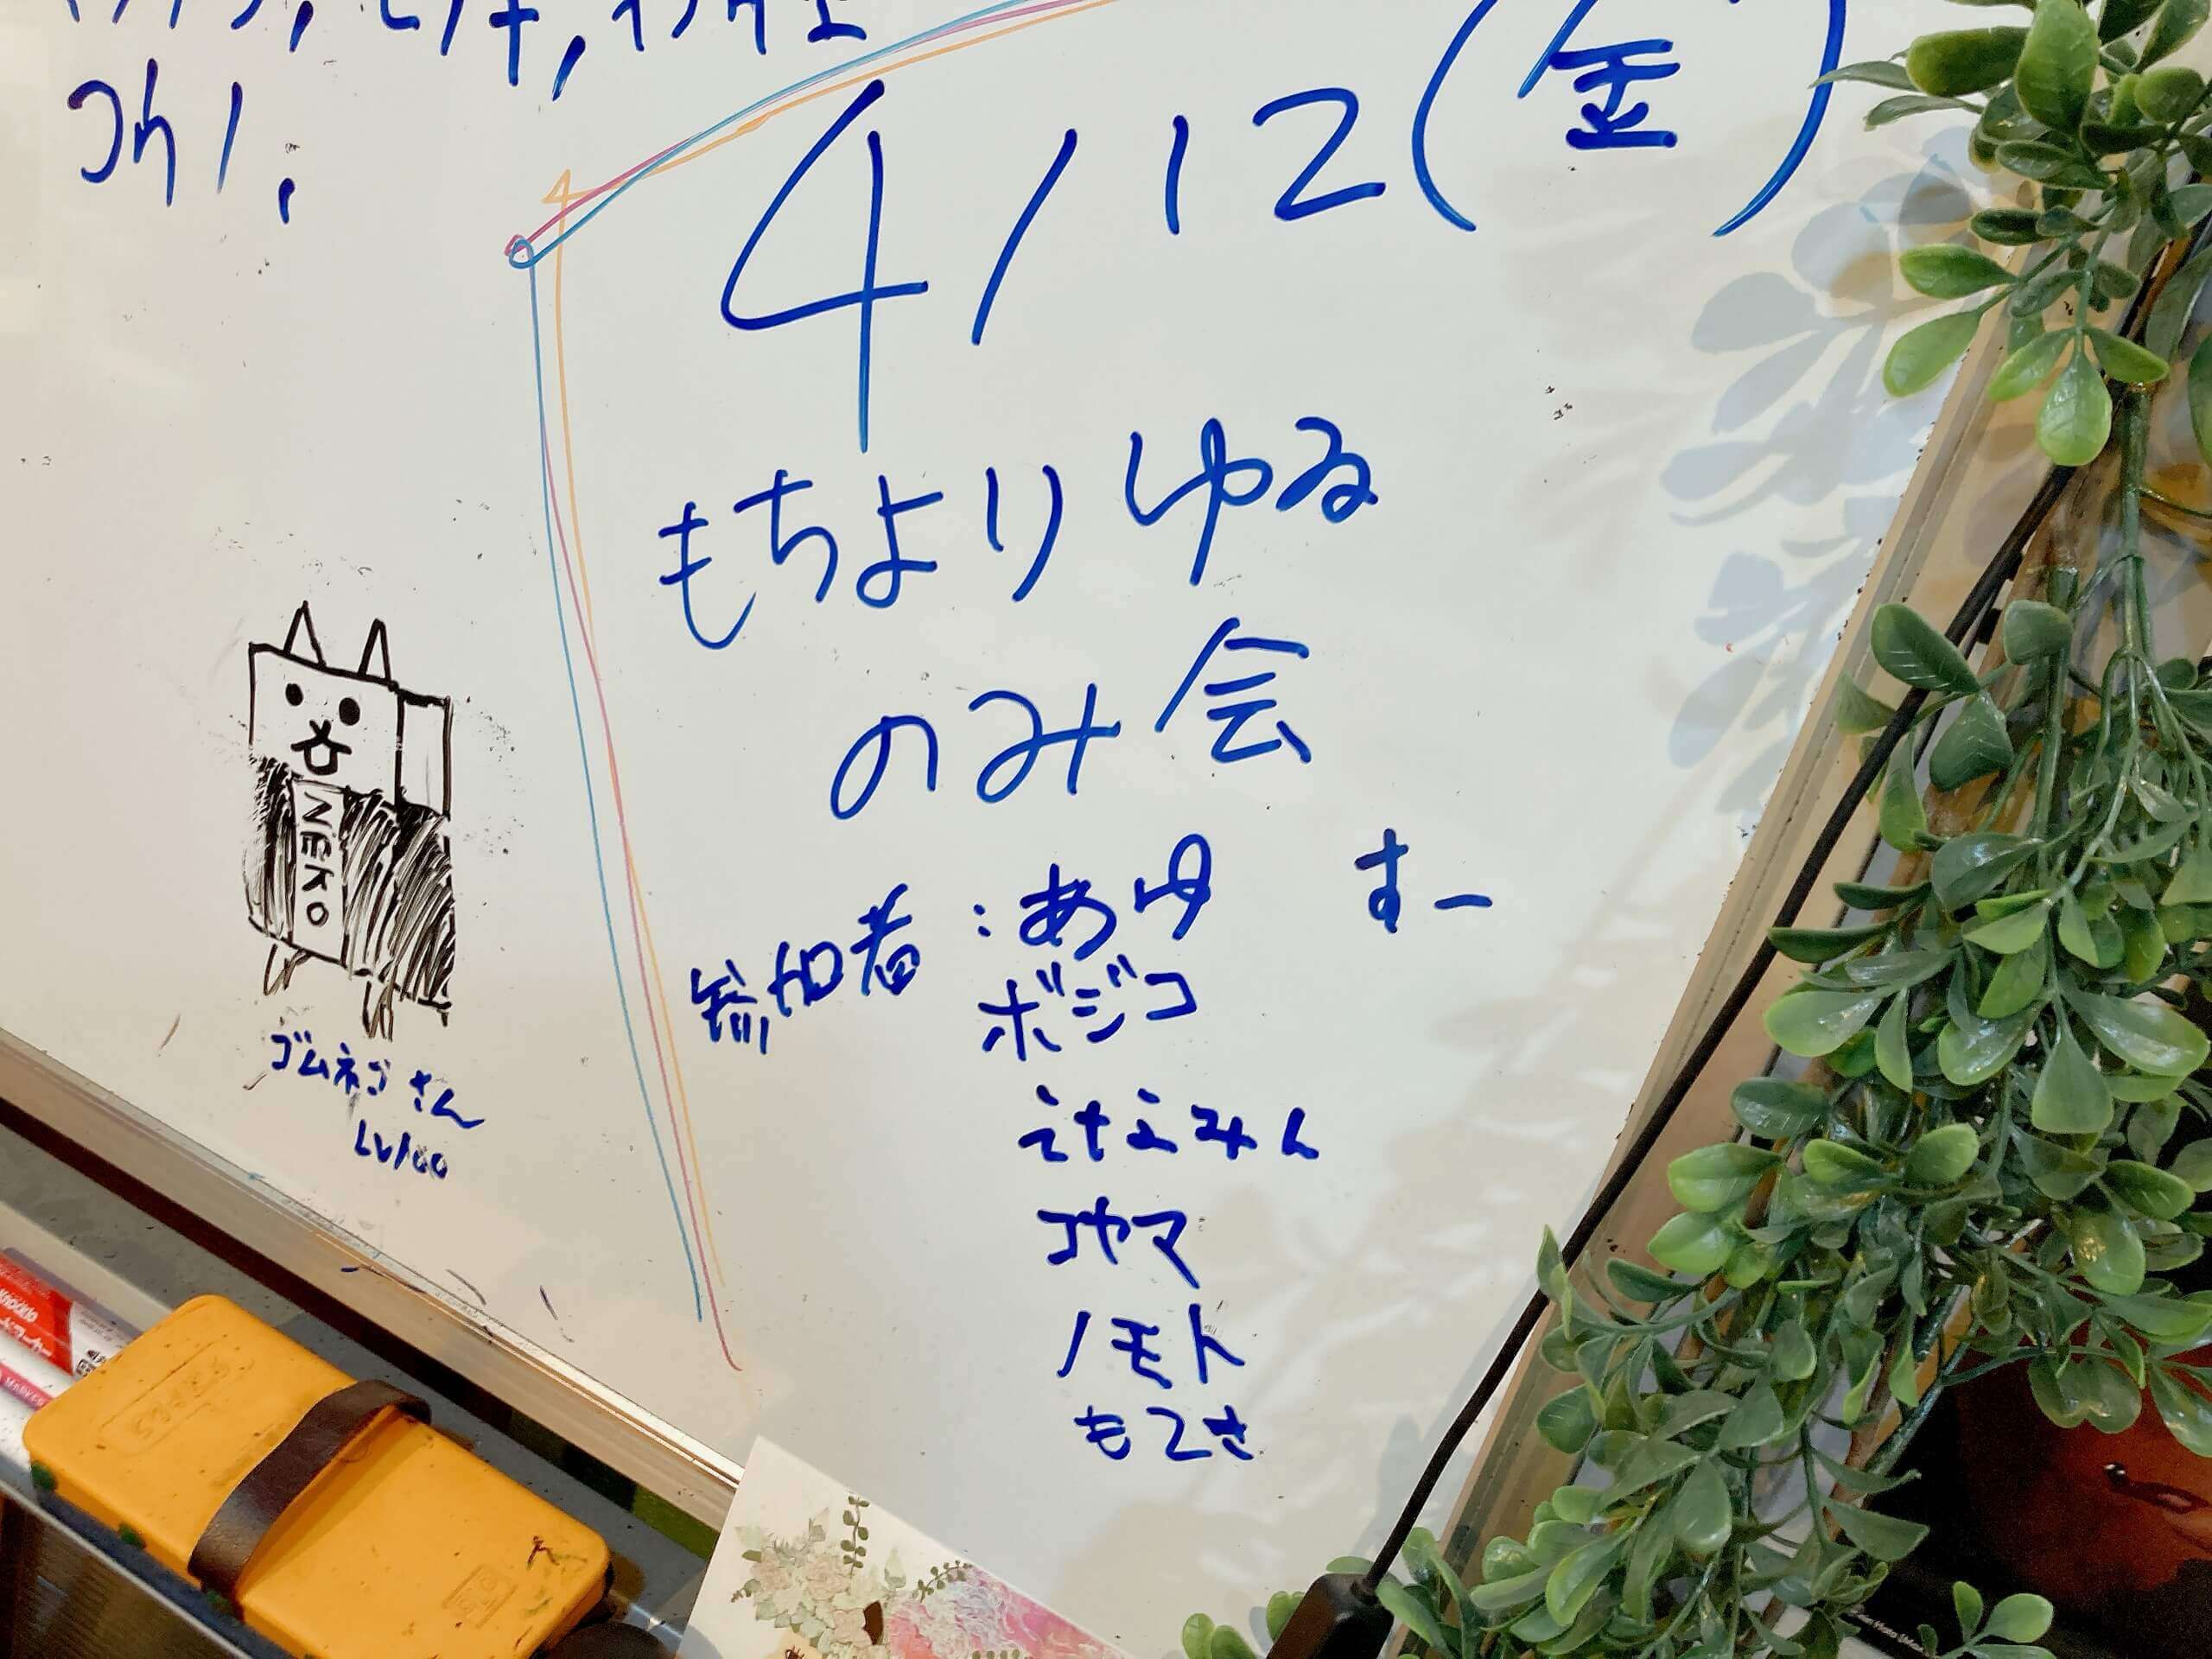 4/12(金)
もちよりゆる
のみ会
参加者:あゆ すー
ボジコ
えなみん
コヤマ
ノモト
もてき
NEKO
ゴムネコさん
Lv100